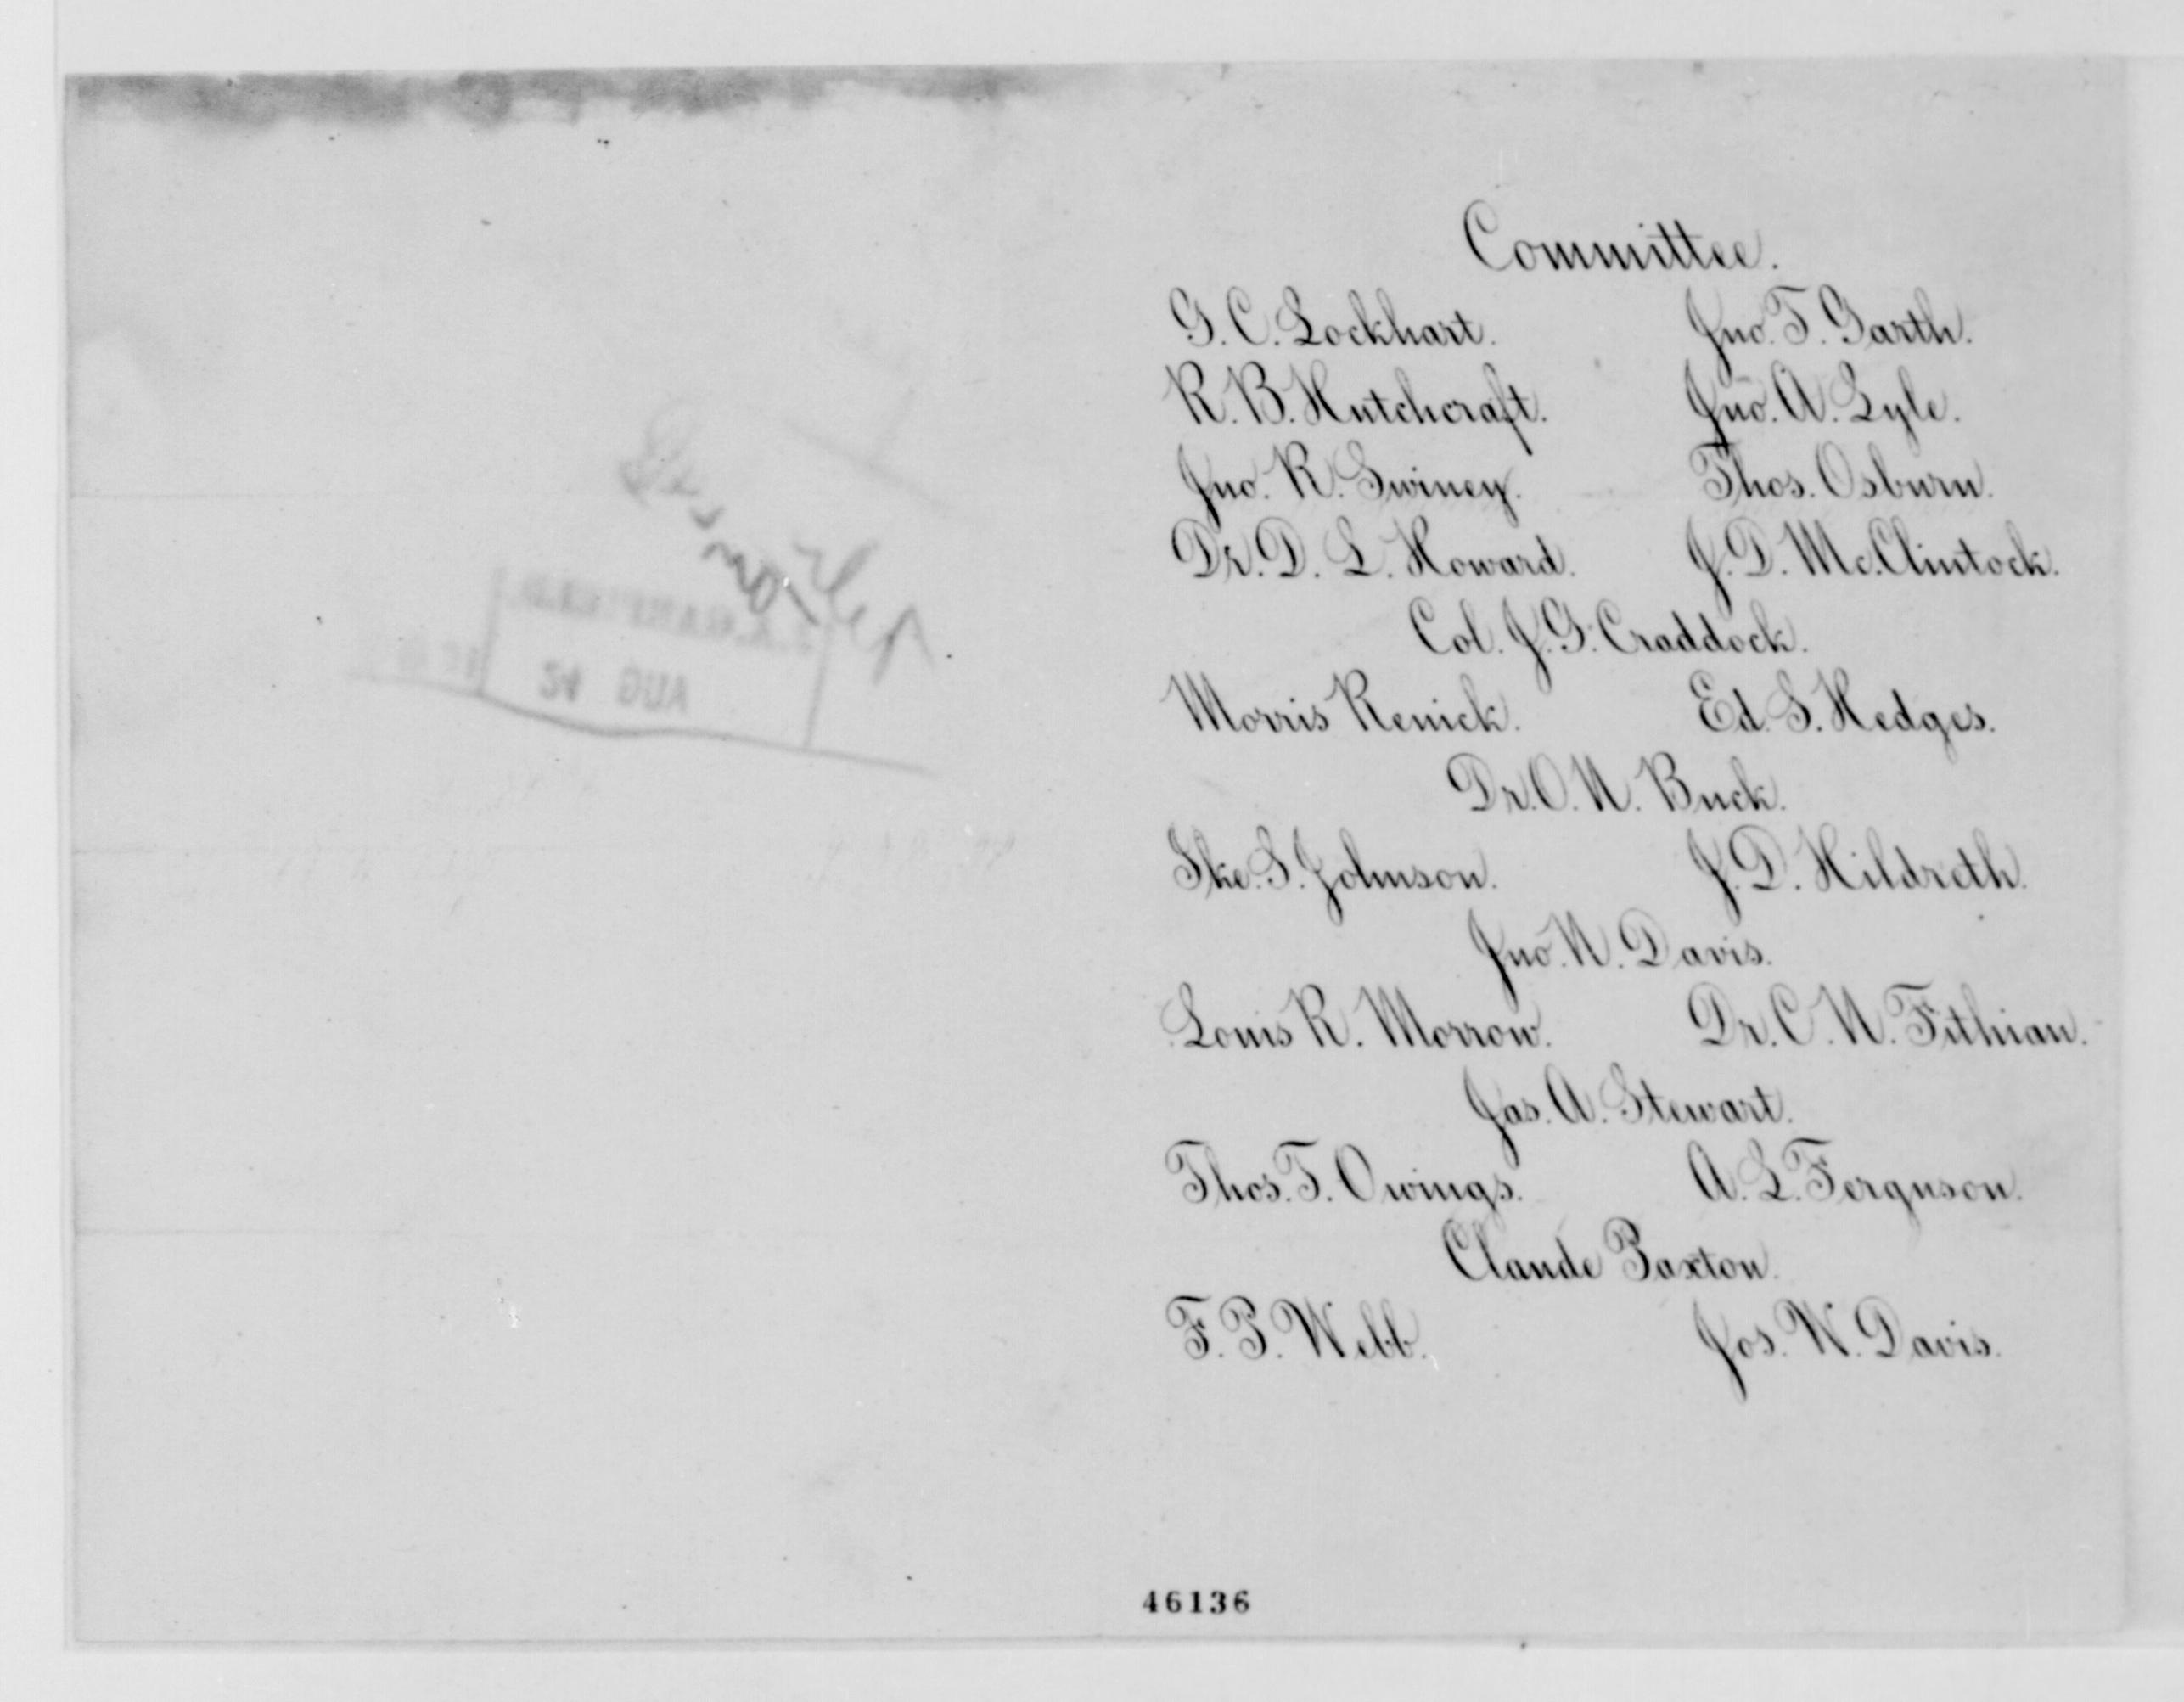 Committee.
G. C. Lockhart. Jno. T. Garth.
R. B. Hutchcraft. Jno. A. Lyle.
Jno. R. Swiney. Thos. Osburn.
Dr. D. L. Howard. J. D. Mc.Clintock.
Col. J. G. Craddock.
Morris Renick. Ed. S. Hedges.
Dr. O. N. Buck.
Ike. S. Johnson. J. D. Hildreth.
Jno. N. Davis.
Louis R. Morrow. Dr. C. N. Fithian.
Jas. A. Stewart.
Thos. T. Owings. A. L. Ferguson.
Claude Paxton.
F. P. Webb. Jos. W. Davis.
AUG 24
46136